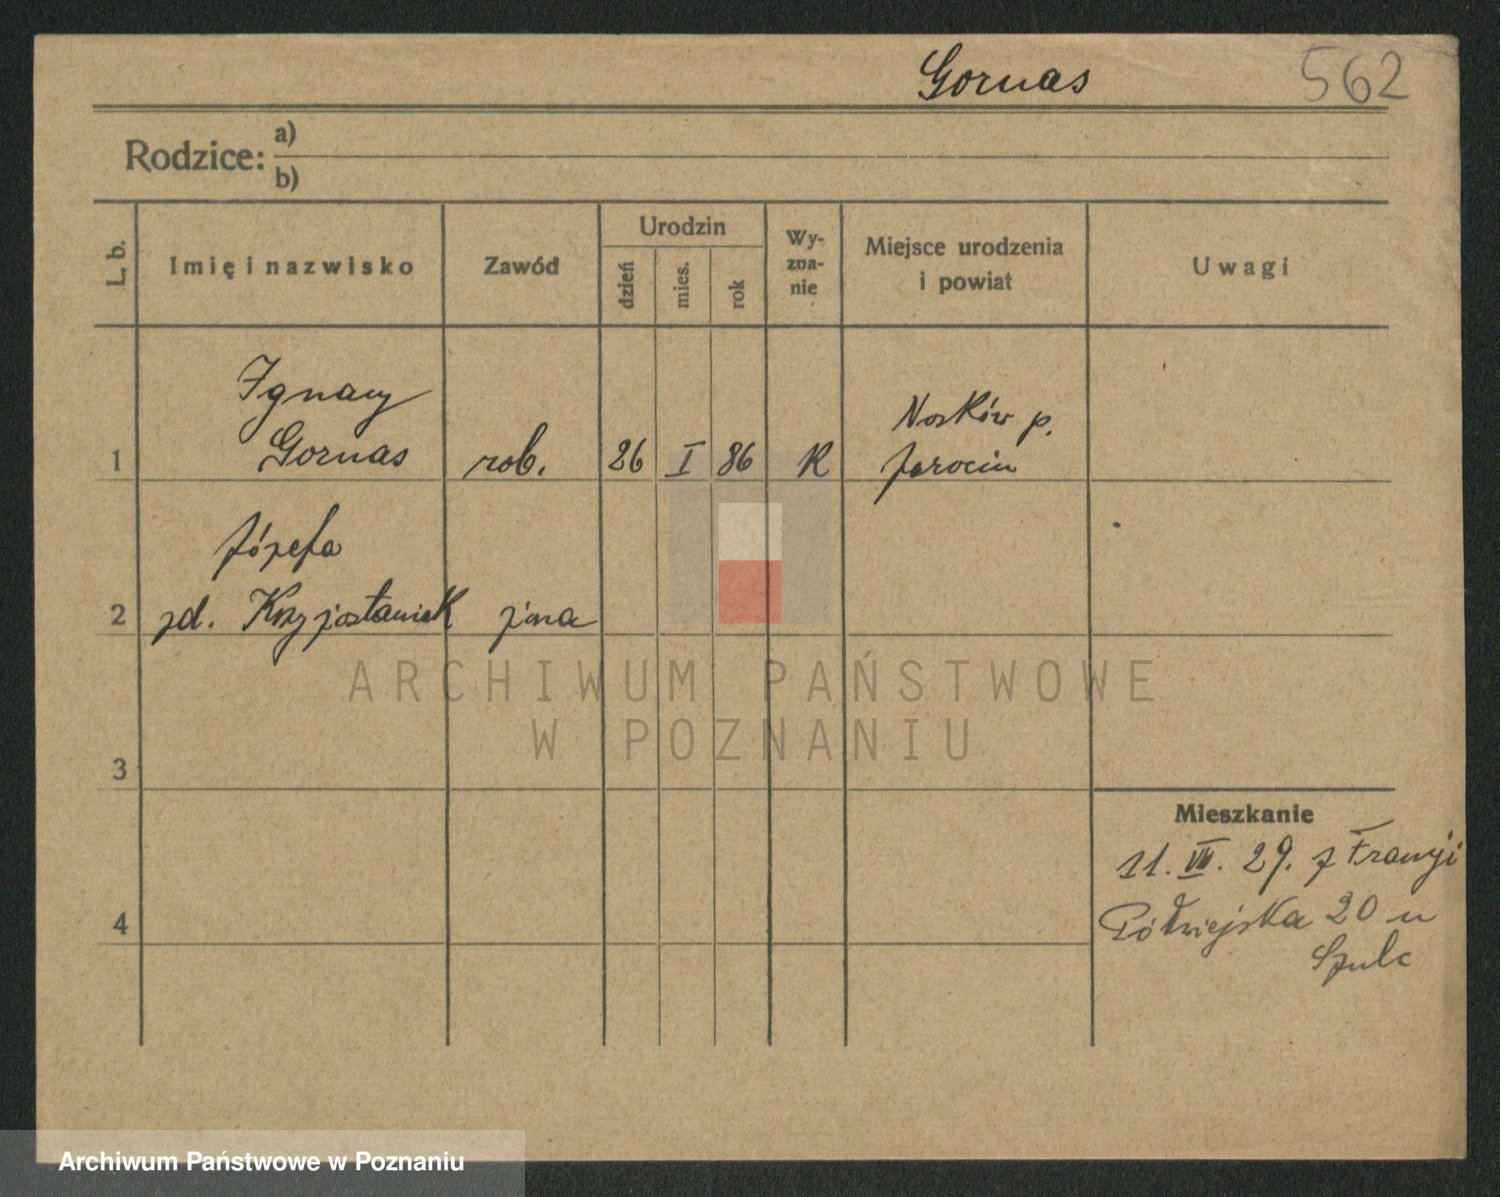 Gornas 562
Rodzice: a)
b)
L. b. Imię i nazwisko Zawód Urodzin dzień mies. rok Wy-zna-nie Miejsce urodzenia i powiat Uwagi
Ignacy
Gornas
1 rob. 26 I 86 R
Nosków p.
Jarocin
Józefa
2 zd. żona
3
4
Mieszkanie
11. VII. 29. z Francji
Półwiejska 20 u
Szulc
ARCHIWUM PAŃSTWOWE
W POZNANIU
Archiwum Państwowe w Poznaniu